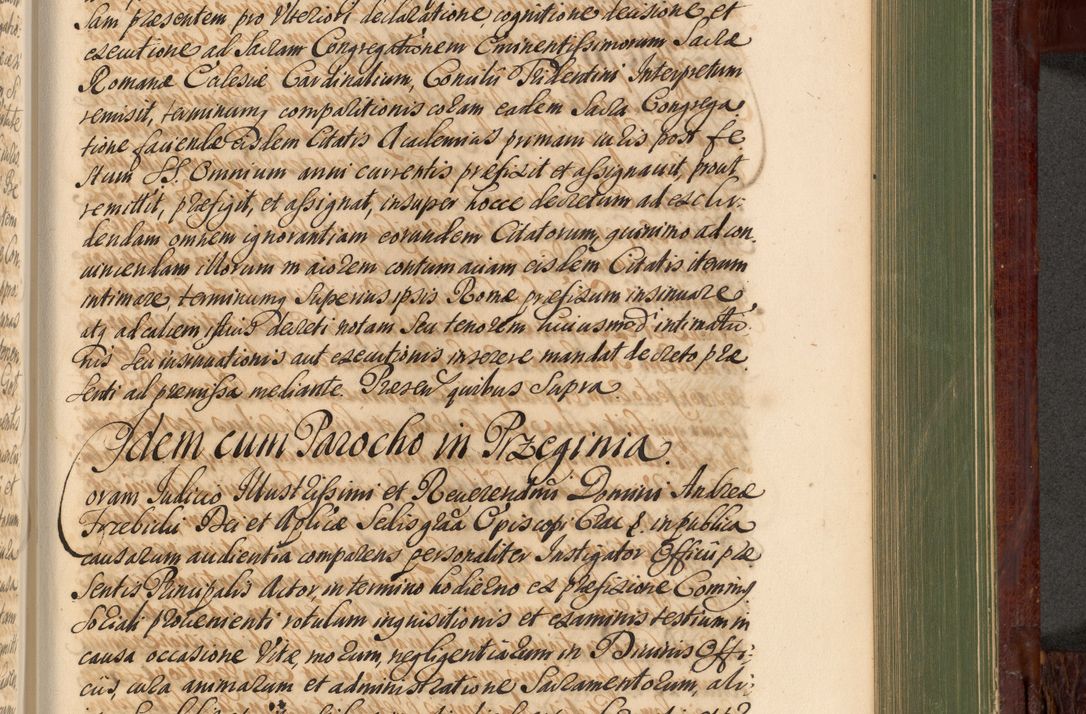 sam praesentem pro ulteriori declaratione cognitione decisione et
executione ad Sacram Congregationem Eminentissimorum Sacrae
Romanae Ecclesiae Cardinalium, Concilii Tridentini Interpretum
remisit, terminumq comparitionis coram eadem Sacra Congrega
tione faciendae eisdem Citatis Academicis primam iuris post fe
stum SS. Omnium anni currentis praefixit et assignavit, prout
remittit, praefigit, et assignat, insuper hocce decretum ad exclu:
dendam omnem ignorantiam eorundem Citatorum, quinimo ad con,
vincendam illorum maiorem contumaciam eisdem Citatis iterum
intimare, terminumq superius ipsis Romae praefixum insinuare
atq ad calcem istius decreti notam seu tenorem huiusmodi intimatio
nis seu insinuationis aut executionis inserere mandat decreto prae
senti ad praemissa mediante. Praesen quibus supra.
Idem cum Parocho in Przeginia.
Coram Iudicio Illustrissimi et Reverendmi Domini Andreae
Trzebicki Dei et Aplicae Sedis graa Episcopi Crac &. in publica
causarum audientia comparens personaliter Instigator Officii prae
sentis Principalis Actor, in termino hodierno ex praefixione Coming
sociali provenienti rotulum inquisitionis et examinis testium in
causa occasione Vitae morum, negligentiarum in Divinis Offi:
ciis, cura animarum et administratione Sacramentorum, ali: